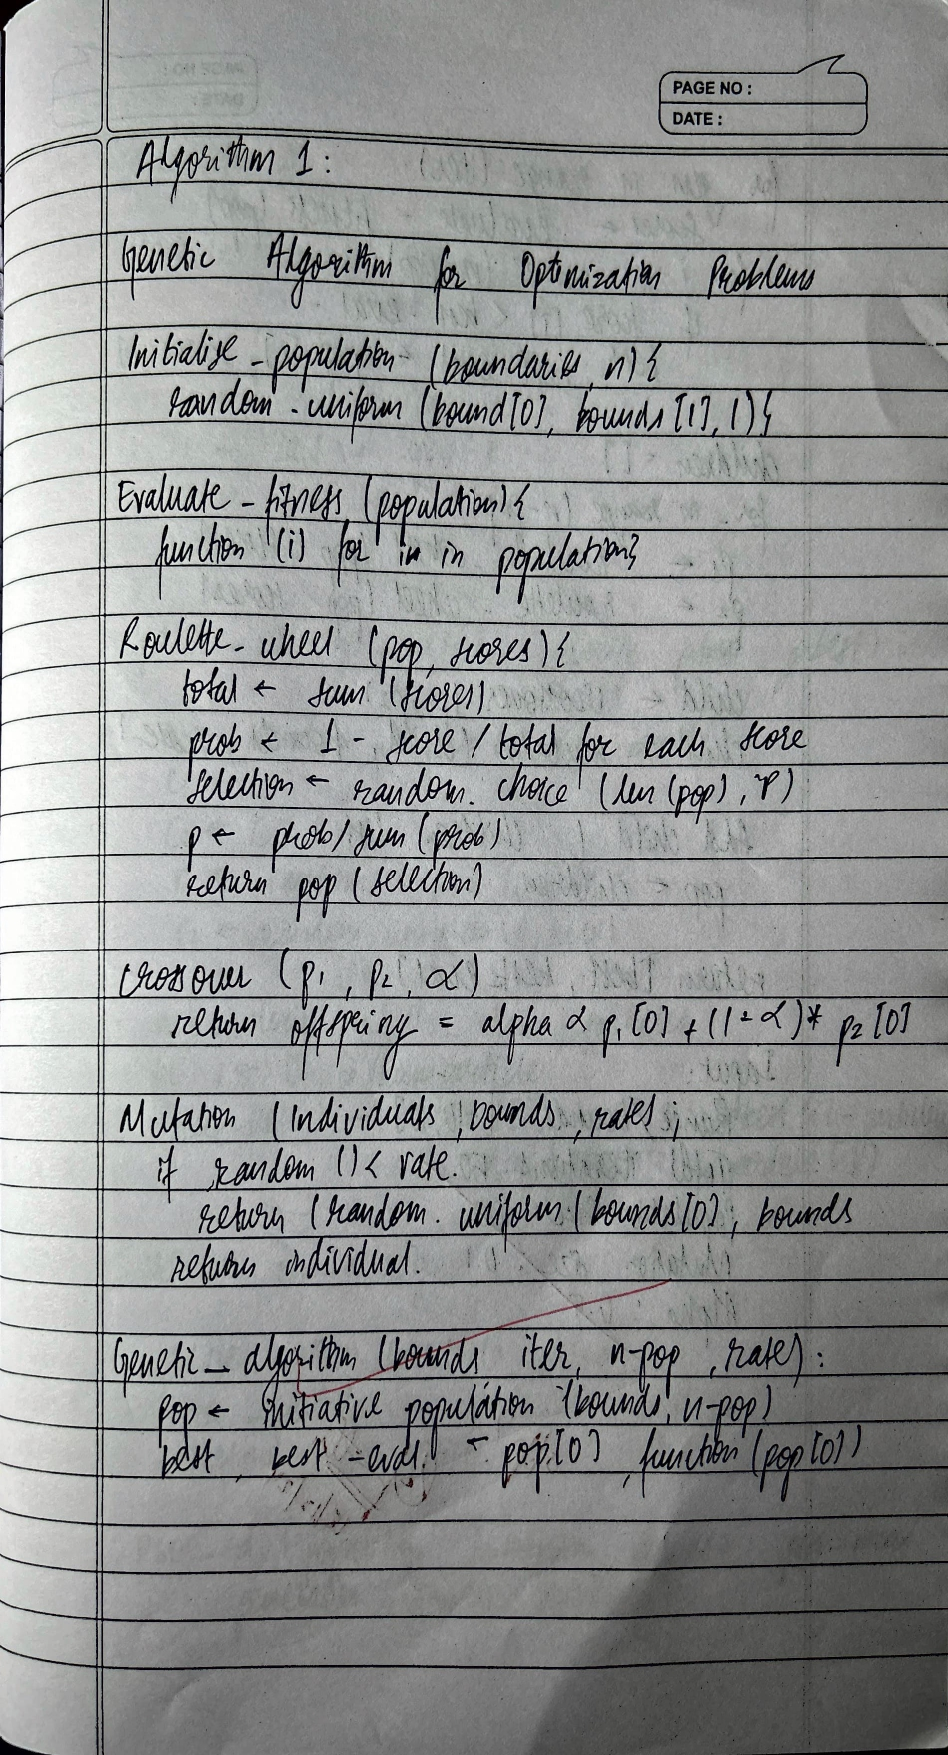 PAGE NO :
DATE :
Algorithm 1 :
Genetic Algorithm for Optimization Problems
Initialise - population - (boundaries, n) {
random . uniform (bound [0], bounds [1], 1) }
Evaluate - fitness (population) {
function (i) for in in population}
Roulette - wheel (pop, scores) {
total ← sum (scores)
prob ← 1 - score / total for each score
selection ← random. choice (len (pop), p)
p ← prob / sum (prob)
return pop (selection)
Crossover (p1, p2, α)
return offspring = alpha α p1 [0] + (1 - α) * p2 [0]
Mutation (Individuals, bounds, rates) ;
if random () < rate.
return (random. uniform (bounds [0], bounds
return individual.
Genetic - algorithm (bounds iter, n-pop, rates) :
pop ← initiative population (bounds, n-pop)
best, best - eval. ← pop [0], function (pop [0])